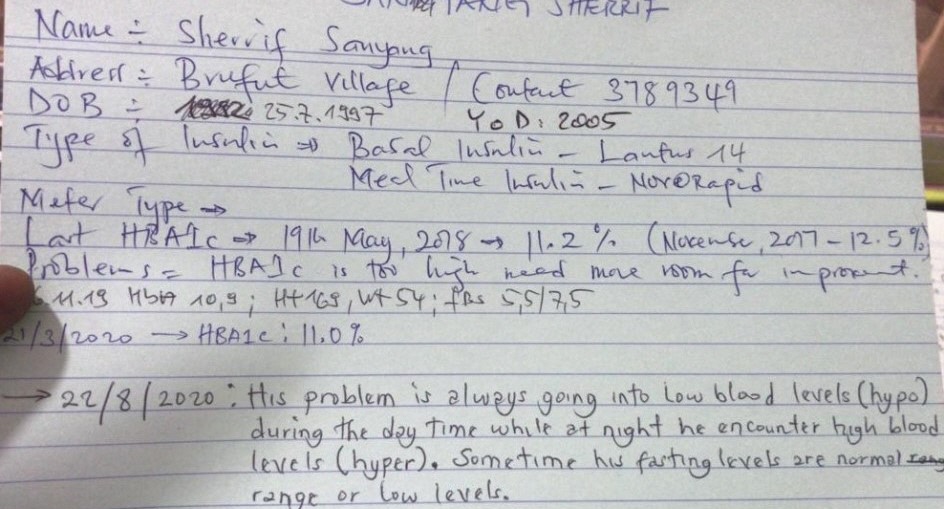 SANYANG SHERRIF
Name ÷ Sherrif Sanyang
Address ÷ Brufut Village / Contact 3789349
DOB ÷ 25.7.1997 YOD: 2005
Type of Insulin ⇒ Basal Insulin - Lantus 14
Meal Time Insulin - NovoRapid
Meter Type →
Last HBA1c → 19th May, 2018 → 11.2% ( , 2017 - 12.5%)
Problems = HBA1c is too high need more room for
.11.19 Hba 10,9; Ht 169, Wt 54; fBs 5,5/7,5
21/3/2020 → HBA1c: 11.0%
→ 22/8/2020: His problem is always going into low blood levels (hypo)
during the day time while at night he encounter high blood
levels (hyper). Sometime his fasting levels are normal
range or low levels.